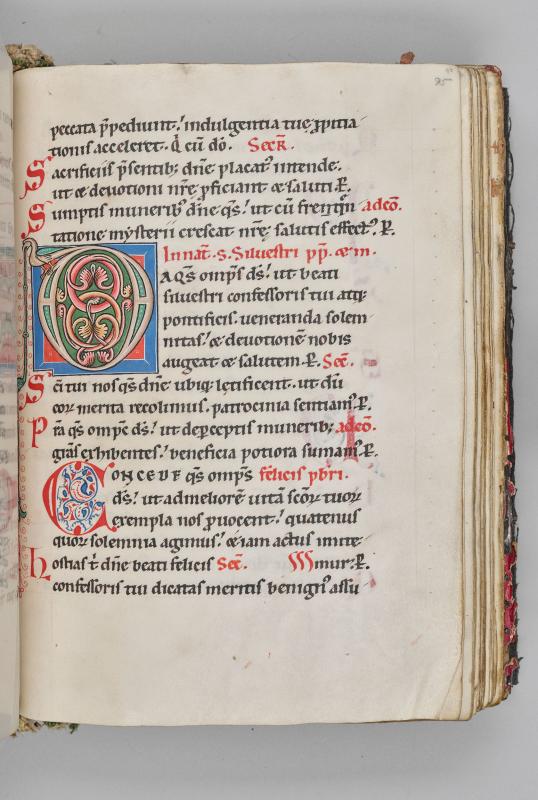 25
peccata p̄pediunt. indulgentia tuę ꝓpitia
tionis acceleret. Q̄ cū dō. Secr̄.
Sacrificiis p̄sentib; dn̄e placat᷒ intende.
ut & deuotioni nrę̄ ꝓficiant & saluti. P.
Sumptis munerib᷒ dn̄e q̄s. ut cū freq̄n adcō.
tatione mysterii crescat nrę̄ salutis effect᷒. P.
In nat̄. S. Siluestri pp̄. & m̄.
DA qs̄ omp̄s ds̄. ut beati
siluestri confessoris tui atq;
pontificis. ueneranda solem
nitas. & deuotionē nobis
augeat & salutem. P. Sec̄.
Sc̄i tui nos qs̄ dn̄e ubiq; lętificent. ut dū
eoꝝ merita recolimus. patrocinia sentiam᷒. P.
Pr̄a qs̄ omp̄c ds̄. ut de perceptis munerib; adcō.
grās exhibentes. beneficia potiora sumam᷒. P.
CONCEDE qs̄ omp̄s felicis p̄bri.
ds̄. ut ad meliorē uitā sc̄oꝝ tuoꝝ
exempla nos ꝓuocent. quatenus
quoꝝ solemnia agimus. &iam actus imite
Hostias t̄ dn̄e beati felicis Sec̄. mur. P.
confessoris tui dicatas meritis benign᷒ assu